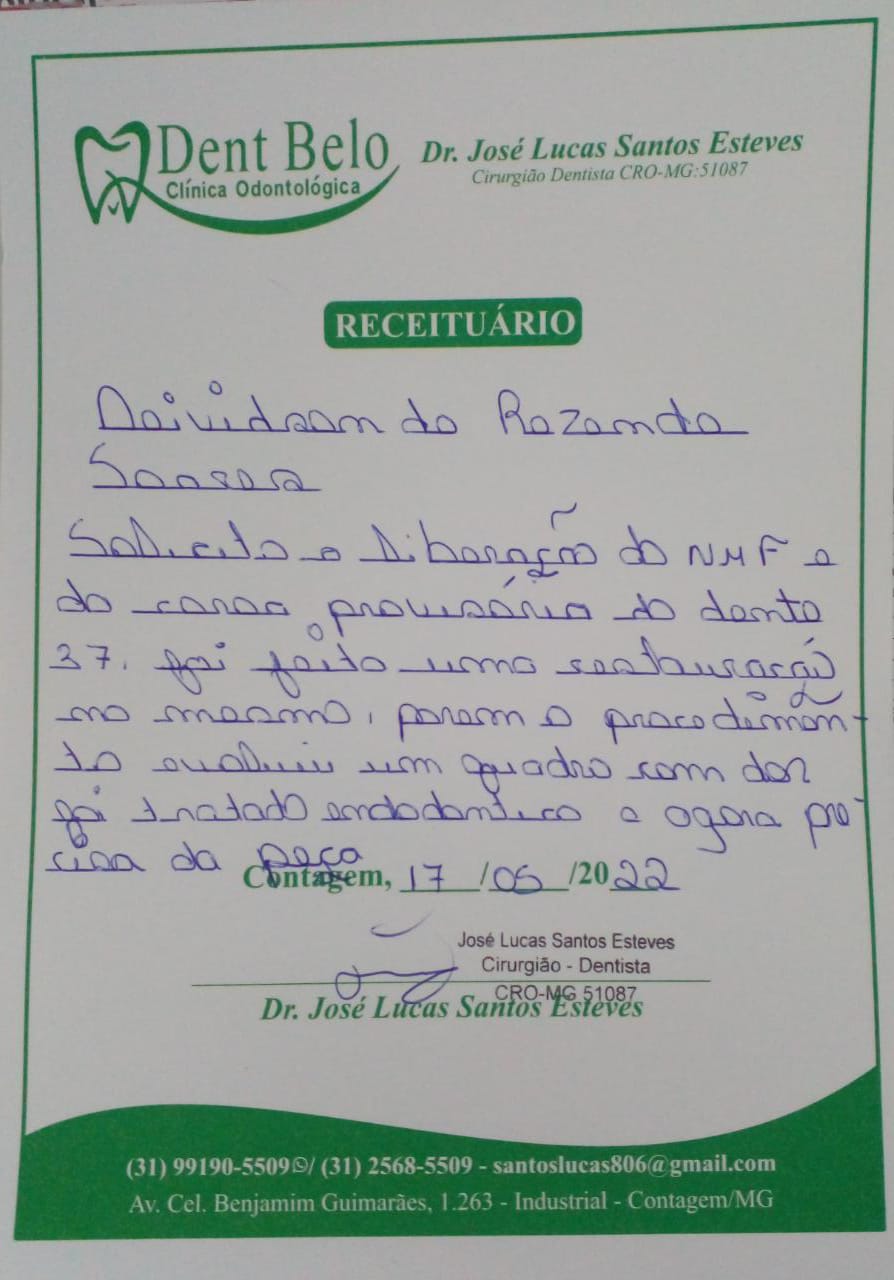 Dent Belo
Clínica Odontológica
Dr. José Lucas Santos Esteves
Cirurgião Dentista CRO-MG:51087
RECEITUÁRIO
Deividson de Rezende
Solicito a liberação do NMF e
da coroa provisória do dente
37. foi feito uma restauração
no mesmo, porem o procedimen-
to evoluiu um quadro com dor
foi tratado endodontico e agora pre-
cisa da peça
Contagem, 17/05/2022
José Lucas Santos Esteves
Cirurgião - Dentista
CRO-MG 51087
Dr. José Lucas Santos Esteves
(31) 99190-5509 / (31) 2568-5509 - santoslucas806@gmail.com
Av. Cel. Benjamim Guimarães, 1.263 - Industrial - Contagem/MG